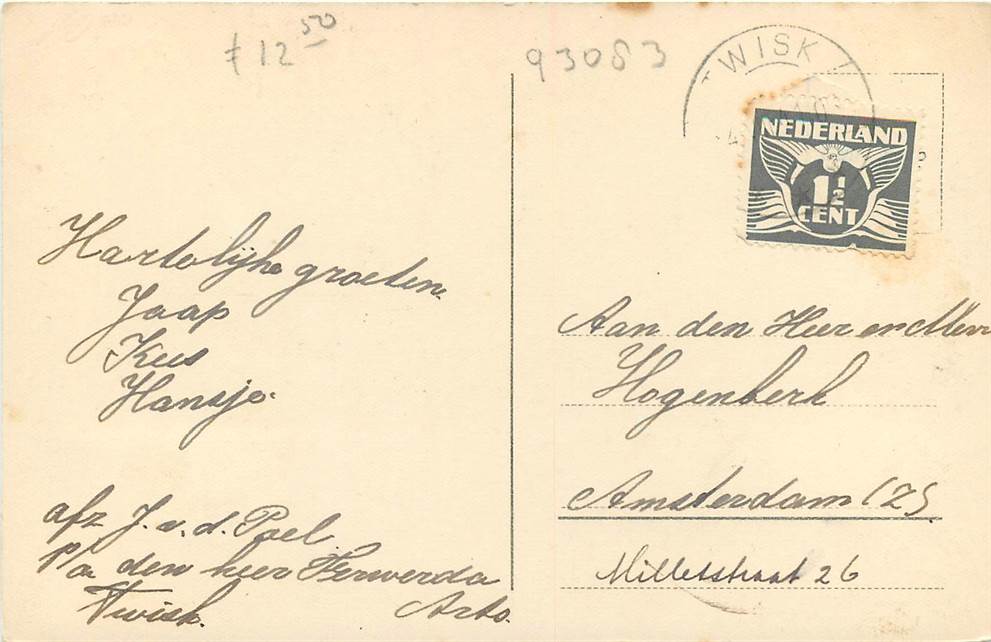 f 12 50
93083
TWISK
NEDERLAND
1½
CENT
Hartelijke groeten
Jaap
Kees
Hansje.
afz J. v. d. Poel.
p/a den heer Herwerda
Twisk. Arts.
Aan den Heer en Mevr
Hogenberk
Amsterdam (Z).
Milletstraat 26